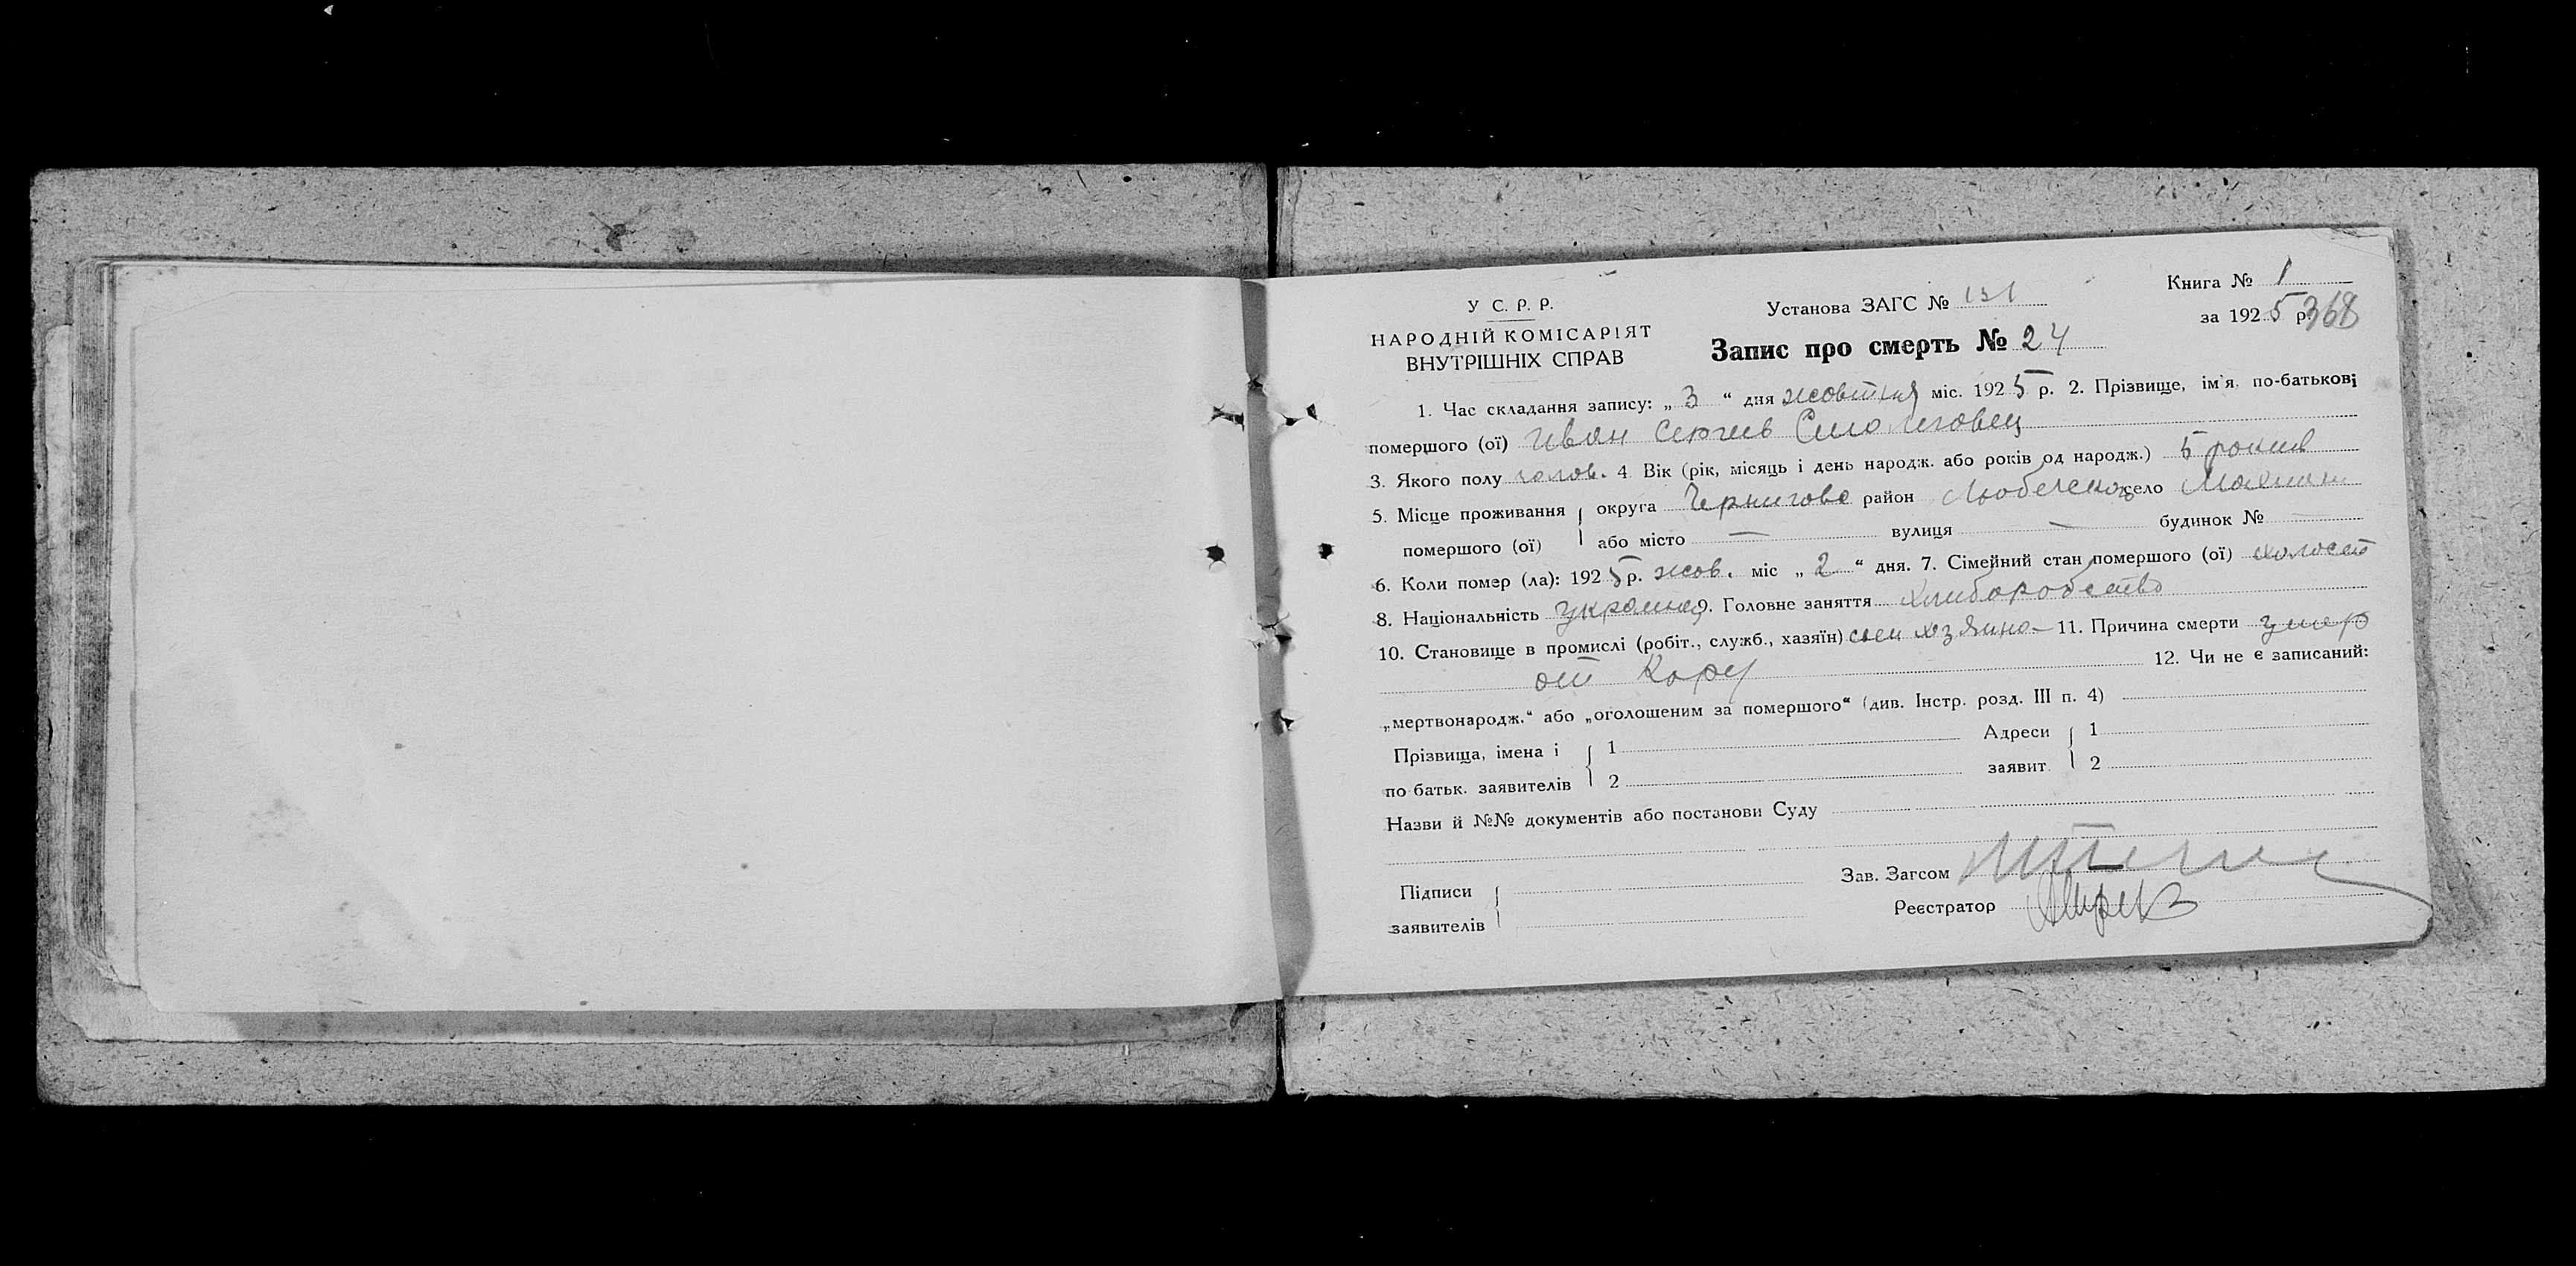 У С. Р. Р.
НАРОДНІЙ КОМІСАРІЯТ
ВНУТРІШНІХ СПРАВ
Установа ЗАГС № 131
Книга № 1
за 1925 р. 368
Запис про смерть № 24
1. Час складання запису: „ 3 “ дня жовтня міс. 1925 р. 2. Прізвище, ім'я, по-батькові
помершого (ої) Иван Сергиев
3. Якого полу чолов. 4 Вік (рік, місяць і день народж. або років од народж.) 5 рокив
5. Місце проживання помершого (ої) округа Чернигово район Любечско село
або місто — вулиця — будинок № —
6. Коли помер (ла): 1925 р. жов. міс „ 2 “ дня. 7. Сімейний стан помершого (ої) холост
8. Національність украинец 9. Головне заняття хлиборобство
10. Становище в промислі (робіт., служб., хазяїн) 11. Причина смерти умер
от Кору 12. Чи не є записаний:
„мертвонародж.“ або „оголошеним за помершого“ (див. Інстр. розд. III п. 4)
Прізвища, імена і по батьк. заявителів 1 2
Адреси заявит. 1 2
Назви й №№ документів або постанови Суду
Підписи заявителів
Зав. Загсом
Реєстратор